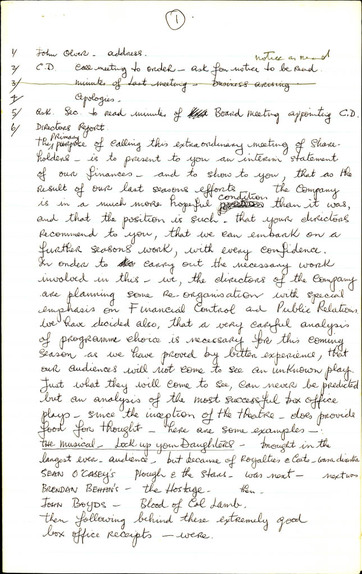 1
1/ John Olver. address.
notice as read
2/ C.D. call meeting to order - ask for notice to be read
3/ minutes of last meeting - business arising
4/ Apologies.
5/ Ask Sec. to read minutes of Board meeting appointing C.D.
6/ Directors Report
Primary
The purpose of calling this extraordinary meeting of share-
holders - is to present to you an interim statement
of our finances - and to show to you, that as the
result of our last seasons efforts The Company
condition
is in a much more hopeful than it was,
and that the position is such - that your directors
recommend to you, that we can embark on a
further seasons work, with every confidence.
In order to carry out the necessary work
involved in this - we, the directors of the Company
are planning some re-organisation with special
emphasis on Financial Control and Public Relations
We have decided also, that a very careful analysis
of programme choice is necessary for this coming
season as we have proved by bitter experience, that
our audiences will not come to see an unknown play.
Just what they will come to see, can never be predicted
but an analysis of the most successful box office
plays - since the inception of the theatre - does provide
food for thought - here are some examples -
The musical - Lock up your Daughters - brought in the
largest ever audience - but because of Royalties & Costs -
SEAN O'CASEY'S Plough & the Stars - was next -
BRENDAN BEHAN'S - the Hostage - then.
JOHN BOYDS - Blood of Col Lamb.
then following behind these extremely good
box office receipts - were.